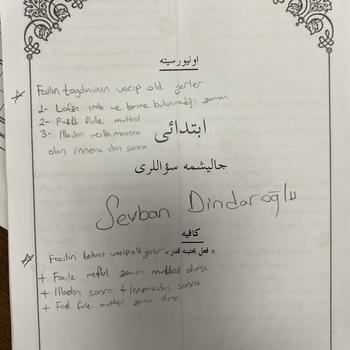 اونيورسيته
Failin takdiminin vacip old. yerler
1- Lafzi irab ve karine bulunmadığı zaman.
2- Fail fiile muttasıl
3- İlladan veilla manasına
olan innema dan sonra
ابتدائى
جاليشمه سؤاللرى
Sevban Dindaroğlu
كافيه
« فعل بحثينه قدر »
Failin tehiri vacip old. yerler
+ Faile meful zamiri muttasıl olursa
+ İlladan sonra + innemadan sonra
+ Fail fiile muttasıl zamir olursa